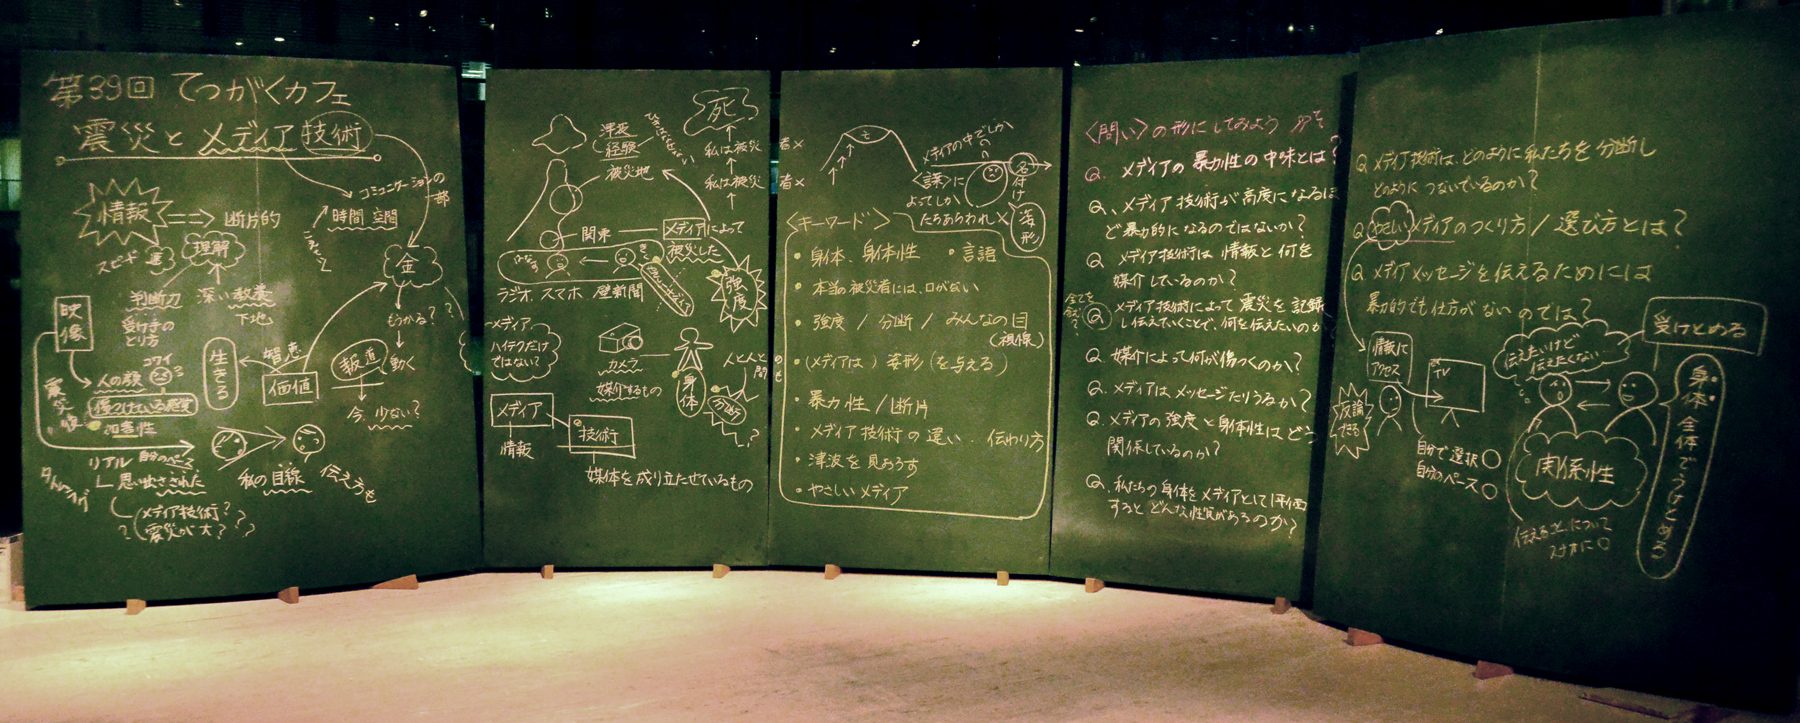 第39回 てつがくカフェ
震災とメディア技術
コミュニケーションの
一部
時間 空間
情報
断片的
スピード
理解
金
判断力
深い教養
下地
受け手の
とり方
映像
コワイ
人の顔
生きる
智恵
価値
報道
動く
もうかる??
今、少ない?
傷つけている感覚
加害性
震災後
リアル 自分のペース
思い出さされた
タイミング
私の目線
伝えうる
メディア技術?
震災が大???
死
私は被災者×
私は被災者×
津波
経験
被災地
関東
メディアによって
被災した
強度
はなす
きく
ラジオ、スマホ、壁新聞
メディア、
ハイテクだけ
ではない?
カメラ
媒介するもの
身体
人と人との
間も
分断
メディア
情報
技術
媒体を成り立たせているもの
メディアの中でしか
〈誤〉に
よってしか
たちあらわれ×
名付け
姿形
〈キーワード〉
・身体、身体性 ・言語
・本当の被災者には、口がない
・強度 / 分断 / みんなの目
(視線)
・(メディアは) 姿形 (を与える)
・暴力性 / 断片
・メディア技術の違い、伝わり方
・津波を見おろす
・やさしいメディア
〈問い〉の形にしてみよう
Q. メディアの暴力性の中味とは?
Q. メディア技術が高度になるほ
ど暴力的になるのではないか?
Q メディア技術は情報と何を
媒介しているのか?
Q メディア技術によって震災を記録
し伝えていくことで、何を伝えたいのか
Q. 媒介によって何が傷つくのか?
Q. メディアはメッセージたりうるか?
Q. メディアの強度と身体性はどう
関係しているのか?
Q. 私たちの身体をメディアとして評価
するとどんな性質があるのか?
Q メディア技術は、どのように私たちを分断し
どのようにつないでいるのか?
Q やさしいメディアのつくり方 / 選び方とは?
Q メディアメッセージを伝えるためには
暴力的でも仕方がないのでは?
情報に
アクセス
TV
反論
自分で選択〇
自分のペース〇
伝えたいけど
伝えたくない
受けとめる
関係性
伝えることについて
身体全体でうけとめる